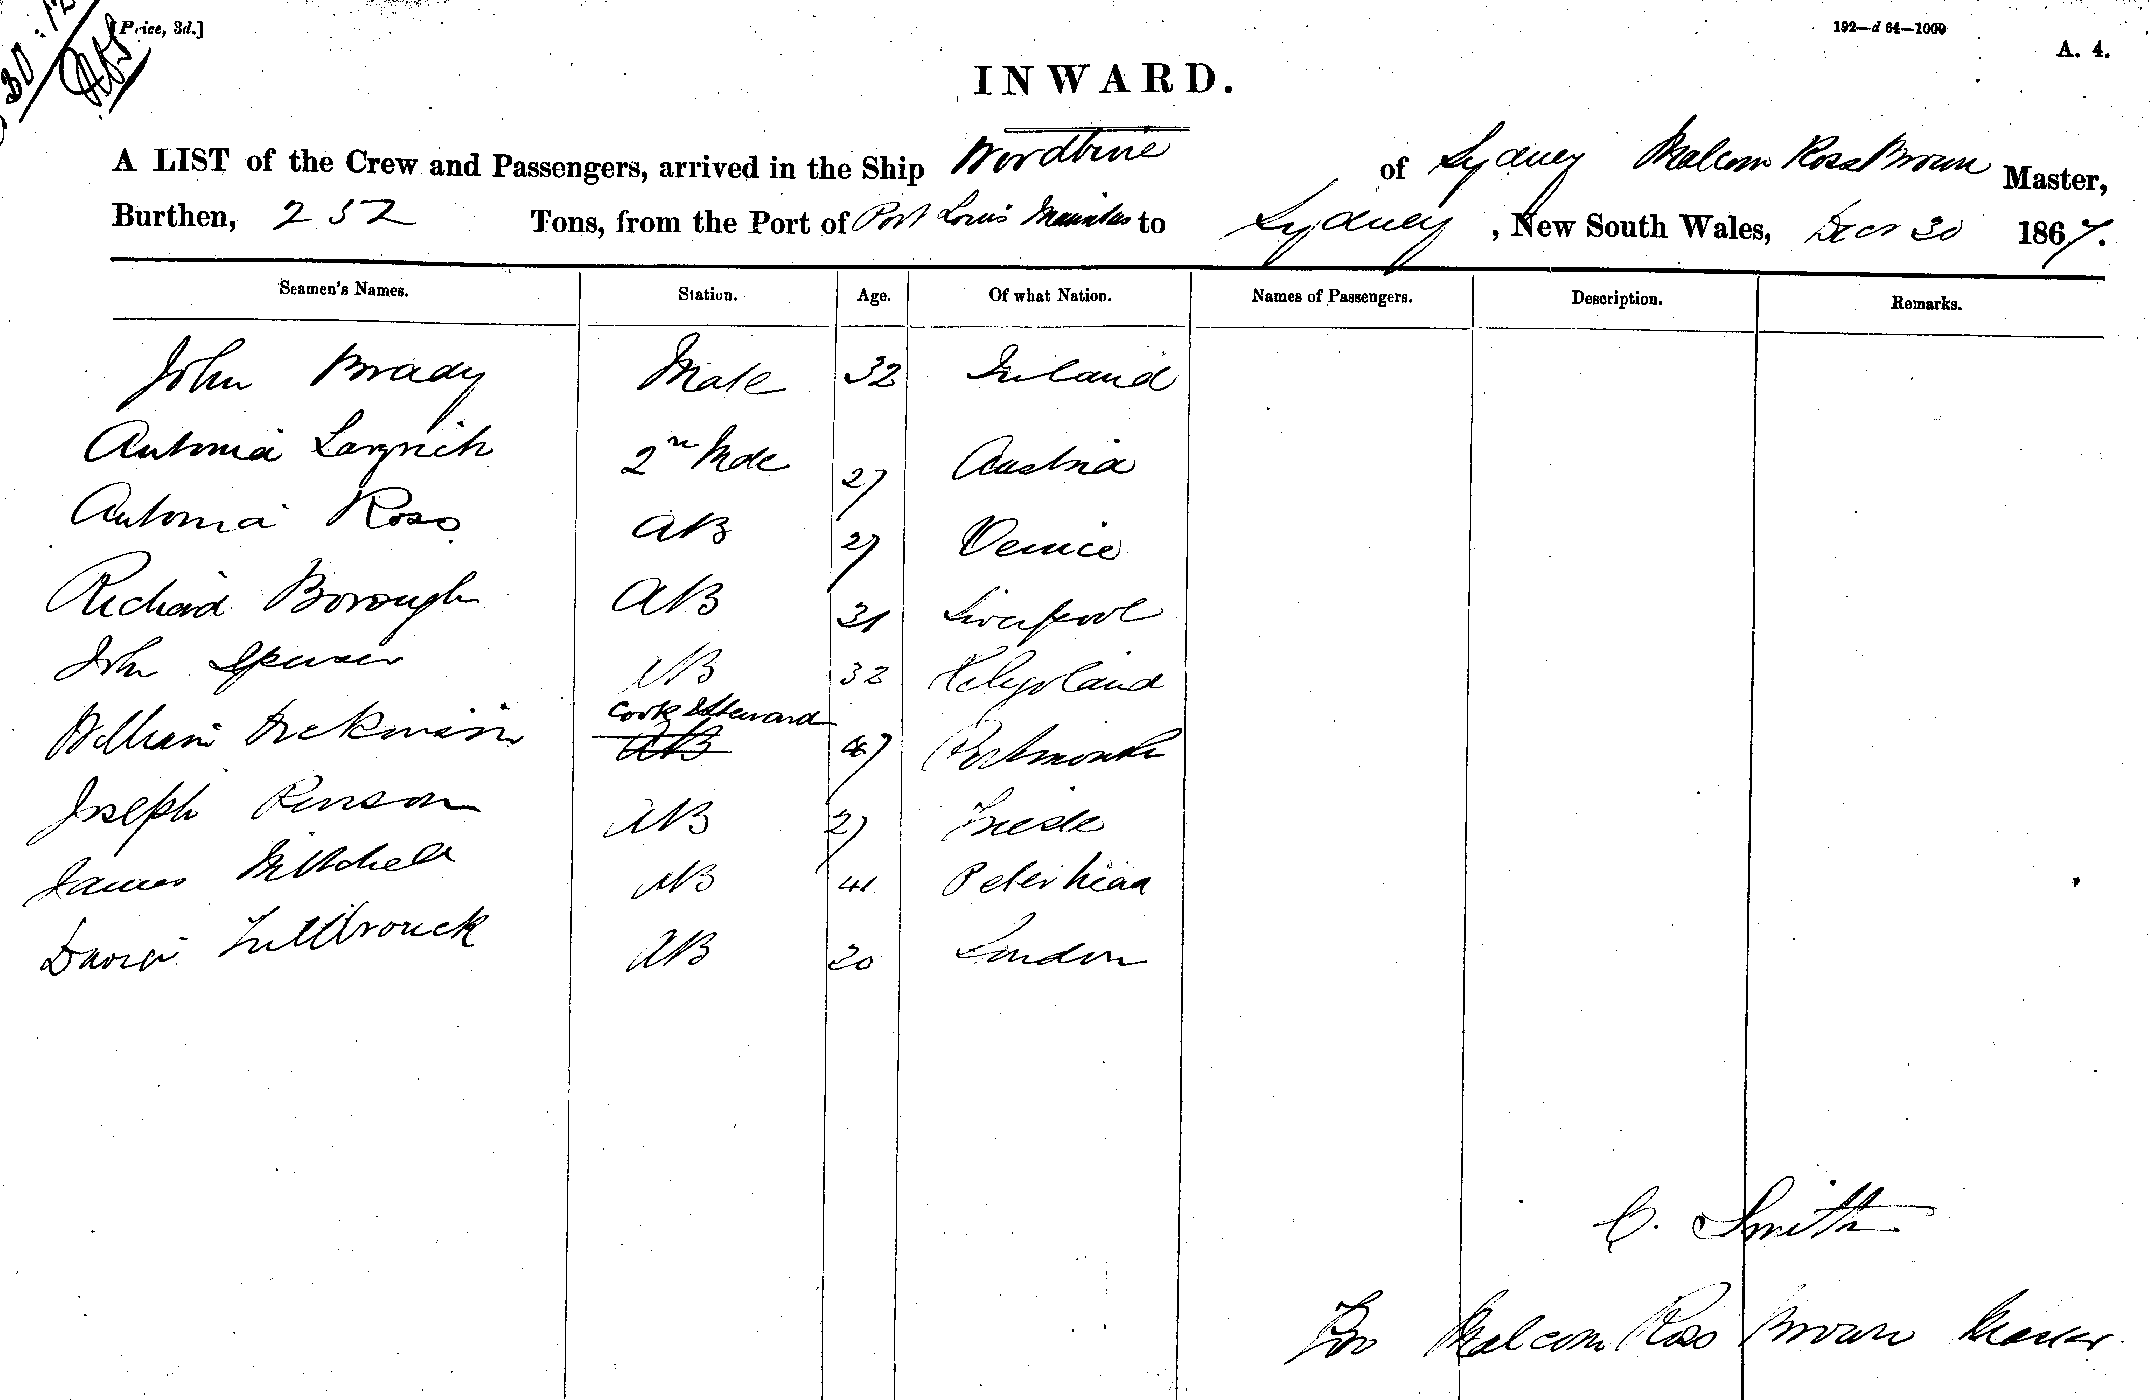 30:12
[Price, 3d.]
192—d 64—1000
A. 4.
INWARD.
A LIST of the Crew and Passengers, arrived in the Ship Woodbine of Sydney Malcom Ross Brown Master,
Burthen, 252 Tons, from the Port of Port Louis Mauritius to Sydney, New South Wales, Decr 30 1867.
Seamen's Names. Station. Age. Of what Nation. Names of Passengers. Description. Remarks.
John Brady Mate 32 Ireland
Antonia 2n Mate 27 Austria
Antonia Ross AB 27 Venice
Richard Borough AB 31 Liverpool
John Spenser AB 32 Helgoland
Cook & Steward
William AB 47 Portsmouth
Joseph AB 27 Trieste
James Mitchell AB 41 Peterhead
David AB 20 London
C. Smith
For Malcom Ross Brown Master